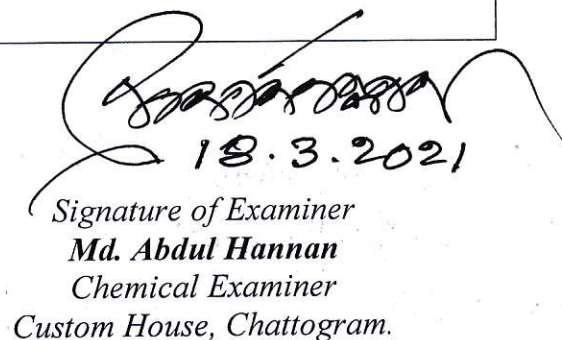 18.3.2021
Signature of Examiner
Md. Abdul Hannan
Chemical Examiner
Custom House, Chattogram.